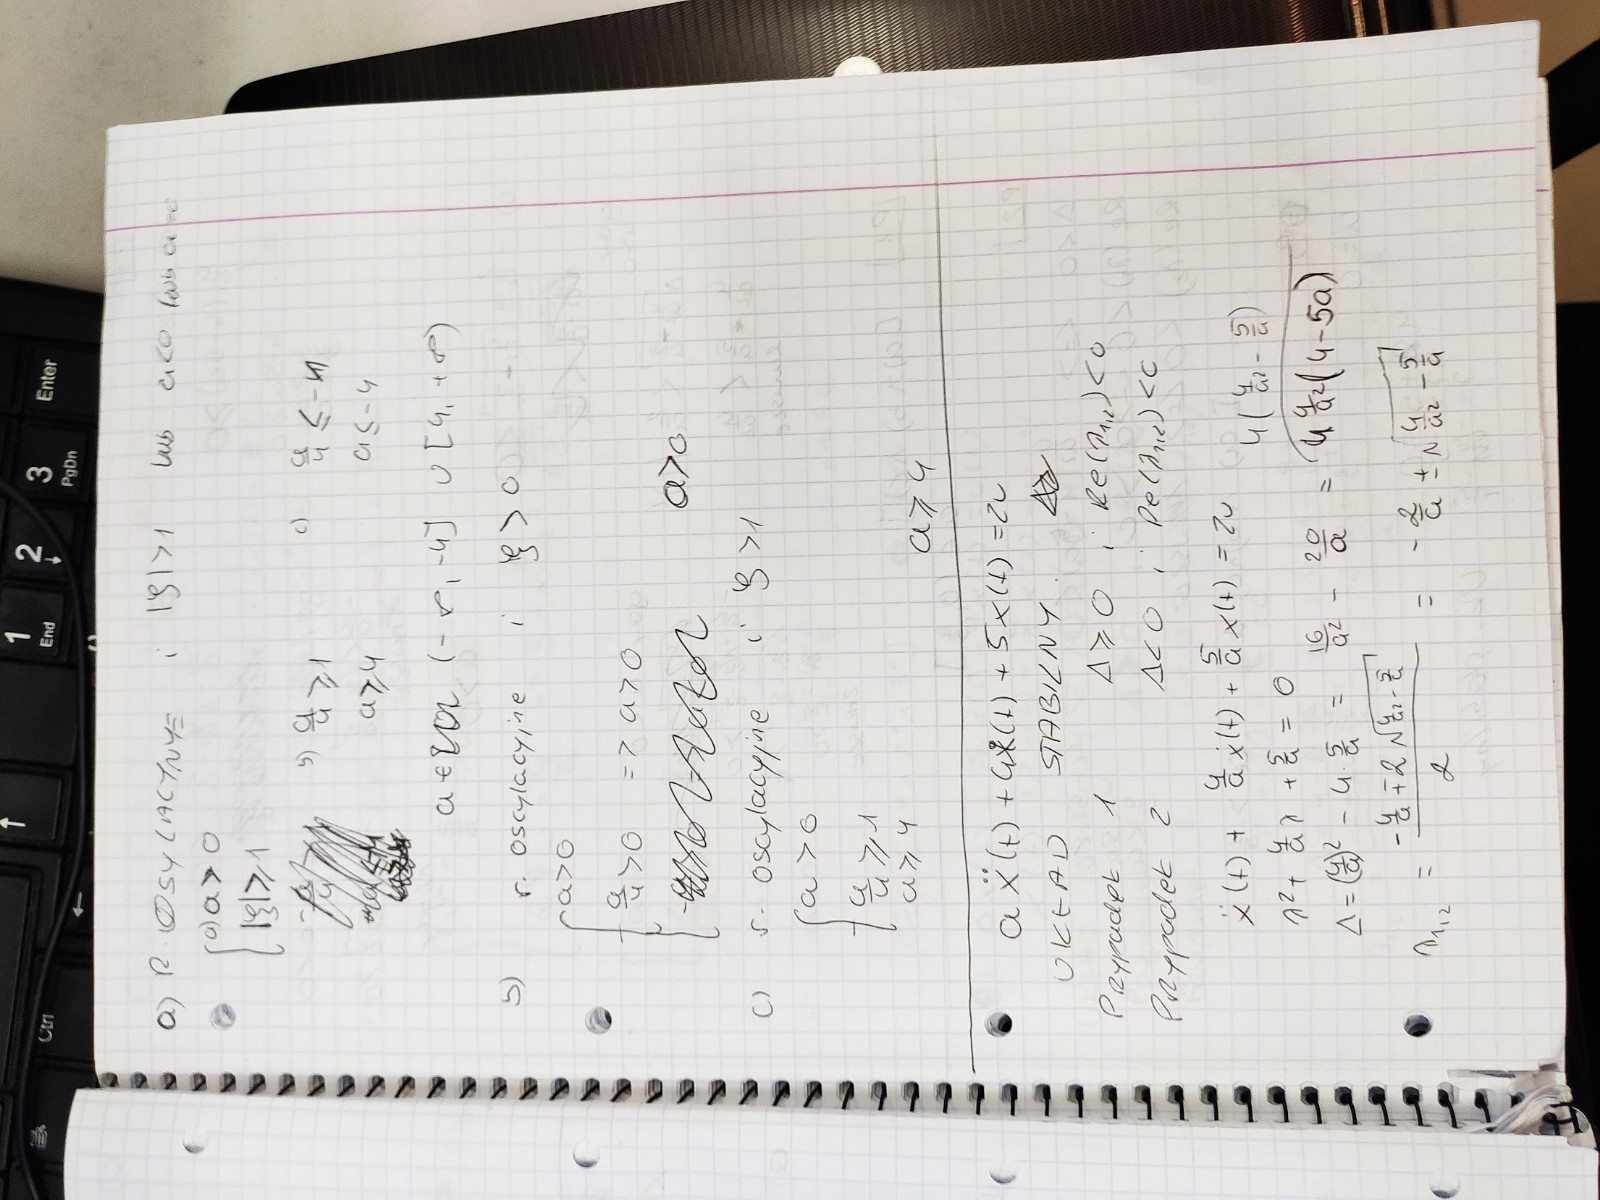 a) R. OSYLACYJNE i |ξ|>1 lub a<0 lub
a) a>0
|ξ|>1
b) a/4 ⩾ 1 c) a/4 ≤ -1
a⩾4 a≤-4
a ∈ (-∞, -4] ∪ [4, +∞)
b) r. oscylacyjne i ξ>0
a>0
a/4 >0 => a>0
a>0
c) r. oscylacyjne i ξ>1
a>0
a/4 ⩾ 1
a⩾4 a⩾4
aẍ(t) + 4ẋ(t) + 5x(t) = 2u
UKŁAD STABILNY.
Przypadek 1 Δ⩾0 i Re(λ1,2)<0
Przypadek 2 Δ<0 i Re(λ1,2)<0
ẍ(t) + 4/a ẋ(t) + 5/a x(t) = 2u
λ² + 4/a λ + 5/a = 0 4(4/a² - 5/a)
Δ = (4/a)² - 4·5/a = 16/a² - 20/a = 4/a²(4-5a)
λ1,2 = = -2/a ± √(4/a² - 5/a)
2